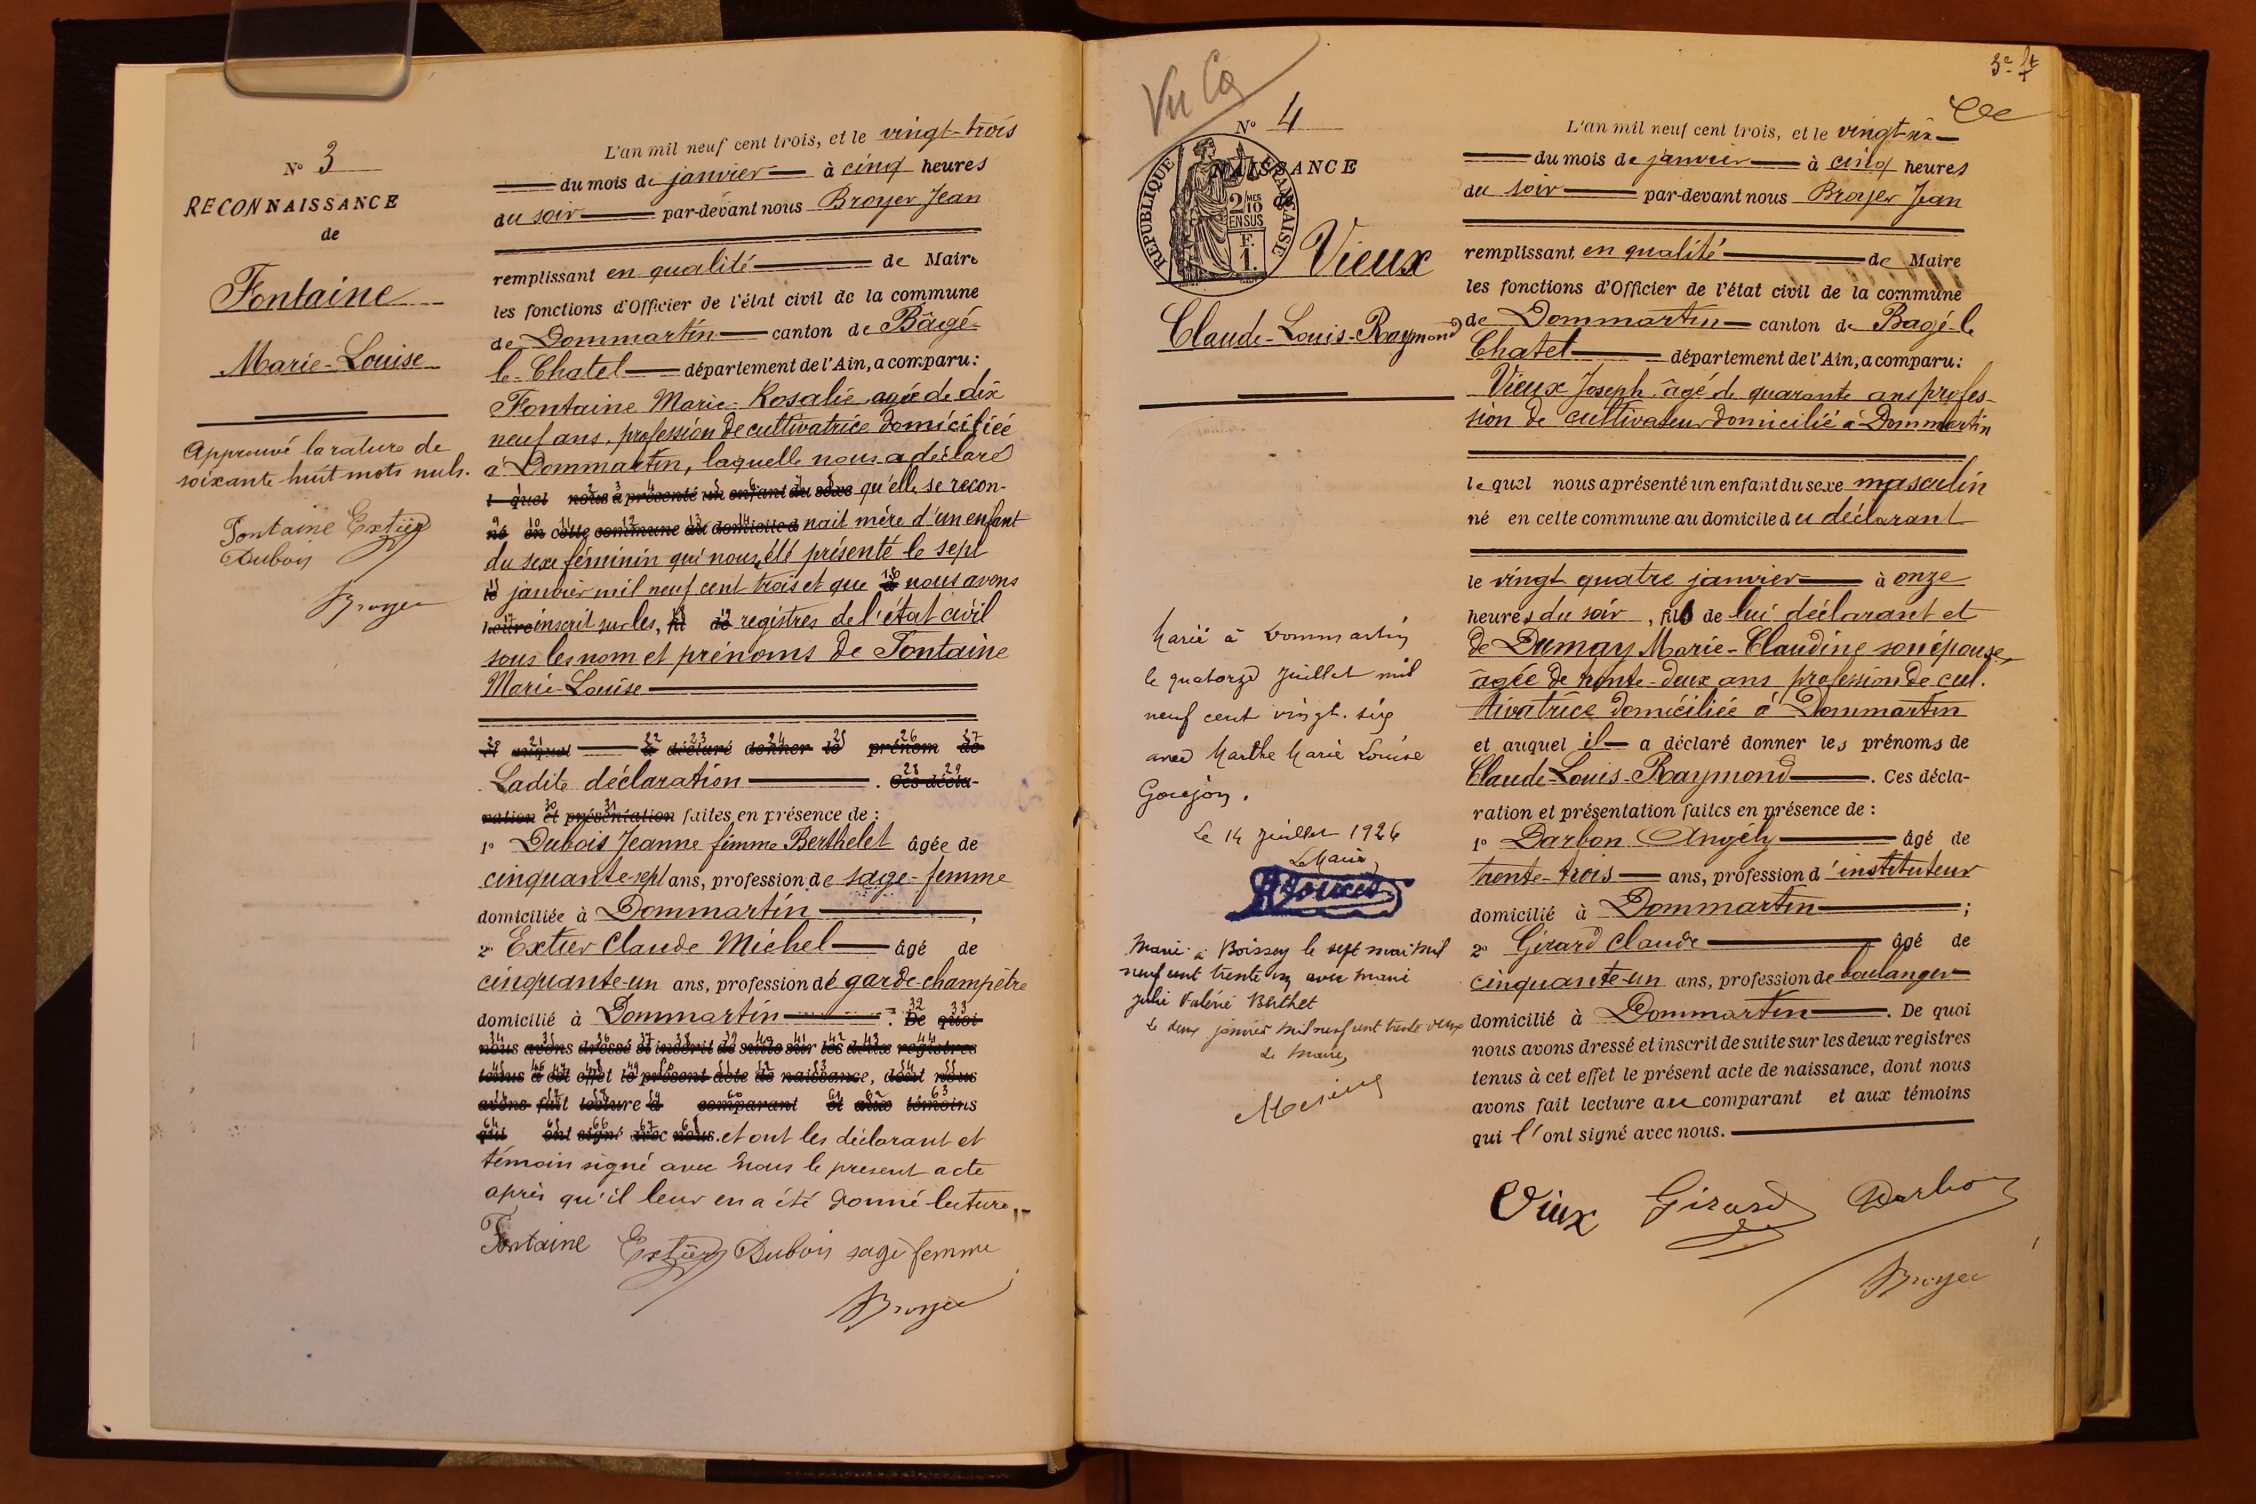 N° 3
RECONNAISSANCE
de
Fontaine
Marie-Louise
Approuvé la rature de
soixante-huit mots nuls.
Fontaine Extier
Dubois
Broyer
L'an mil neuf cent trois, et le vingt-trois
du mois de janvier à cinq heures
du soir par-devant nous Broyer Jean
remplissant en qualité de Maire
les fonctions d'Officier de l'état civil de la commune
de Dommartin canton de Bâgé-
le-Chatel département de l'Ain, a comparu:
Fontaine Marie-Rosalie agée de dix
neuf ans, profession de cultivatrice domiciliée
à Dommartin, laquelle nous a déclaré
l quel nous a présenté un enfant du sexe qu'elle se recon-
né en cette commune au domicile d nait mère d'un enfant
du sexe féminin qui nous, été présenté le sept
le janvier mil neuf cent trois et que à nous avons
heure inscrit sur les, fil de registres de l'état civil
sous les nom et prénoms de Fontaine
Marie-Louise
et auquel a déclaré donner le prénom de
Ladite déclaration . Ces décla-
ration et présentation faites en présence de :
1° Dubois Jeanne femme Berthelet âgée de
cinquante-sept ans, profession de sage-femme
domiciliée à Dommartin ;
2° Extier Claude Michel âgé de
cinquante-un ans, profession de garde-champêtre
domicilié à Dommartin . De quoi
nous avons dressé et inscrit de suite sur les deux registres
tenus à cet effet le présent acte de naissance, dont nous
avons fait lecture a comparant et aux témoins
qui ont signé avec nous. et ont les déclarant et
témoin signé avec nous le présent acte
après qu'il leur en a été donné lecture.
Fontaine Extier Dubois sage femme
Broyer
3e
Vu
N° 4
NAISSANCE
de
REPUBLIQUE FRANÇAISE
2/10MES
EN SUS
F.
1.
Vieux
Claude-Louis-Raymond
Marié à Dommartin
le quatorze juillet mil
neuf cent vingt-six
avec Marthe Marie Louise
Goujon.
Le 14 Juillet 1926
Le Maire,
Marié à Boissey le sept mai mil
neuf cent trente un avec Marie
Julie Valérie Berthet
Le deux janvier mil neuf cent trente deux
Le Maire,
L'an mil neuf cent trois, et le vingt-six
du mois de janvier à cinq heures
du soir par-devant nous Broyer Jean
remplissant en qualité de Maire
les fonctions d'Officier de l'état civil de la commune
de Dommartin canton de Bagé-le
Chatel département de l'Ain, a comparu:
Vieux Joseph âgé de quarante ans profes-
sion de cultivateur domicilié à Dommartin
le quel nous a présenté un enfant du sexe masculin
né en cette commune au domicile du déclarant
le vingt quatre janvier à onze
heures du soir, fils de lui déclarant et
de Dumay Marie-Claudine son épouse,
âgée de trente-deux ans profession de cul-
tivatrice domiciliée à Dommartin
et auquel il a déclaré donner les prénoms de
Claude-Louis-Raymond . Ces décla-
ration et présentation faites en présence de :
1° Darbon Angély âgé de
trente-trois ans, profession d'instituteur
domicilié à Dommartin ;
2° Gérard Claude âgé de
cinquante-un ans, profession de boulanger
domicilié à Dommartin . De quoi
nous avons dressé et inscrit de suite sur les deux registres
tenus à cet effet le présent acte de naissance, dont nous
avons fait lecture au comparant et aux témoins
qui l'ont signé avec nous.
Vieux Girard Darbon
Broyer